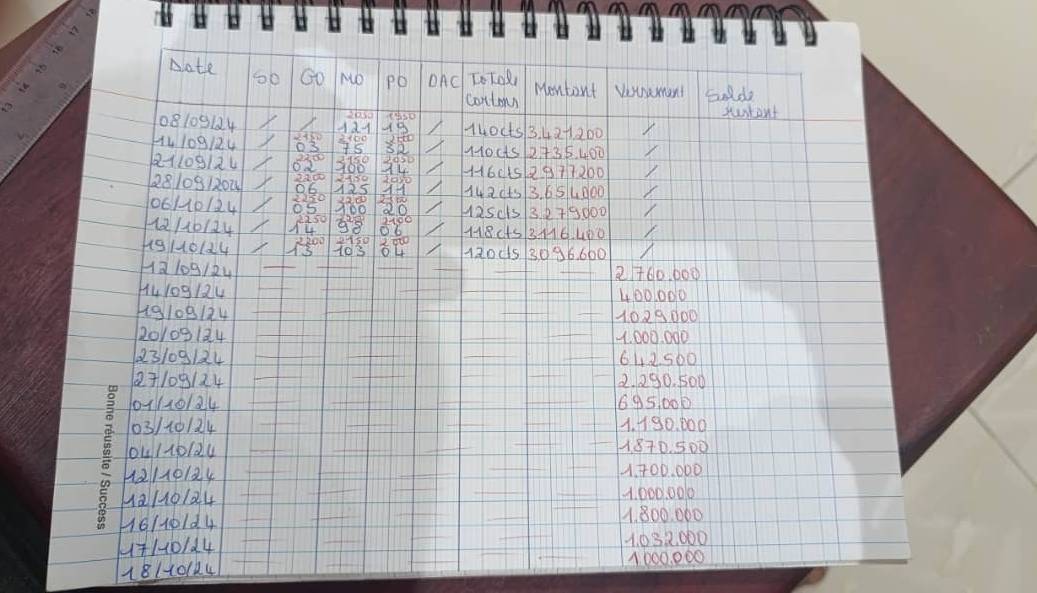 Date SO GO MO PO DAC Totale cartons Montant Versement Solde restant
2050 1950
08/09/24 / / 121 19 / 140cts 3.421.200 /
2150 2100 2000
14/09/24 / 03 75 32 / 110cts 2.735.400 /
2200 2150 2050
21/09/24 / 02 100 14 / 116cts 2977200 /
2200 2150 2050
28/09/2024 / 06 125 11 / 142cts 3.654.000 /
2250 2200
06/10/24 / 05 100 20 / 125cts 3.279000 /
2250 2100
12/10/24 / 14 98 06 / 118cts 3116.400 /
2200 2150 2000
19/10/24 / 13 103 04 / 120cts 3096.600 /
12/09/24 2.760.000
14/09/24 400.000
19/09/24 1029.000
20/09/24 1.000.000
23/09/24 642.500
27/09/24 2.290.500
01/10/24 695.000
03/10/24 1.190.000
04/10/24 1.870.500
12/10/24 1.700.000
12/10/24 1.000.000
16/10/24 1.800.000
17/10/24 1.032.000
18/10/24 1.000.000
Bonne réussite / Success
13 14 15 16 17 18